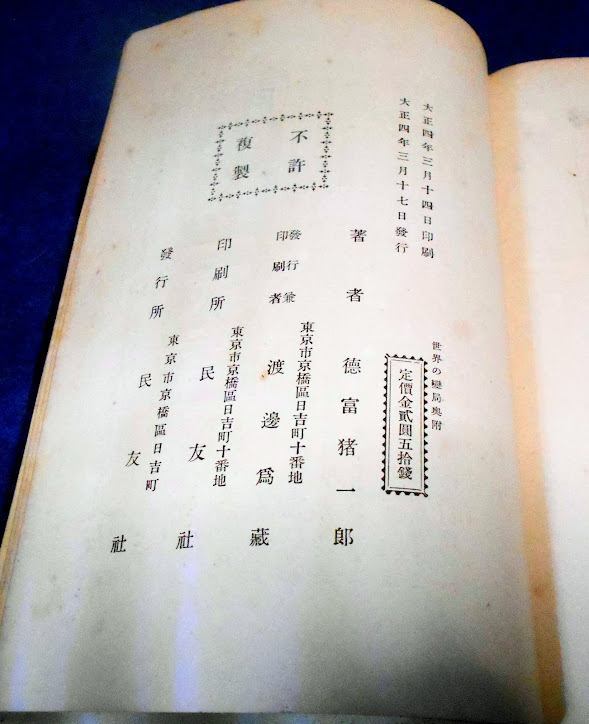 世界の變局奧附
大正四年三月十四日印刷
大正四年三月十七日發行
定價金貳圓五拾錢
不許
複製
著者
德富猪一郎
發行兼
印刷者
東京市京橋區日吉町十番地
渡邊爲藏
印刷所
東京市京橋區日吉町十番地
民友社
發行所
東京市京橋區日吉町
民友社